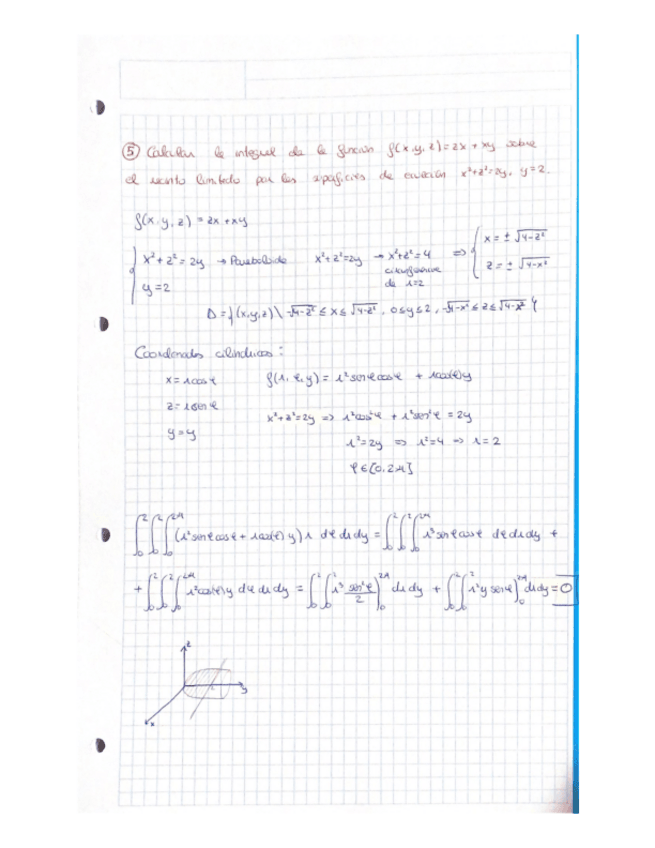 ⑤ Calcular la integral de la función f(x,y,z)=zx+xy sobre
el recinto limitado por las superficies de ecuación x²+z²=2y, y=2.
f(x,y,z) = zx+xy
{ x²+z²=2y → Paraboloide x²+z²=2y → x²+z²=4 ⇒ { x=±√4-z²
y=2 circunferencia de r=2 z=±√4-x²
D={(x,y,z)\ -√4-z² ≤ x ≤ √4-z², 0≤y≤2, -√4-x² ≤ z ≤ √4-x²}
Coordenadas cilíndricas:
x=rcosφ f(r,φ,y) = r²senφcosφ + rcos(φ)y
z=rsenφ
x²+z²=2y ⇒ r²cos²φ + r²sen²φ = 2y
y=y
r²=2y ⇒ r²=4 ⇒ r=2
φ∈[0,2π]
∫₀²∫₀²∫₀^2π (r²senφcosφ + rcos(φ)y) r dφdrdy = ∫₀²∫₀²∫₀^2π r³senφcosφ dφdrdy +
+ ∫₀²∫₀²∫₀^2π r²cos(φ)y dφdrdy = ∫₀²∫₀² r³ sen²φ/2 )₀^2π drdy + ∫₀²∫₀² r²y senφ )₀^2π drdy = 0
z
y
x